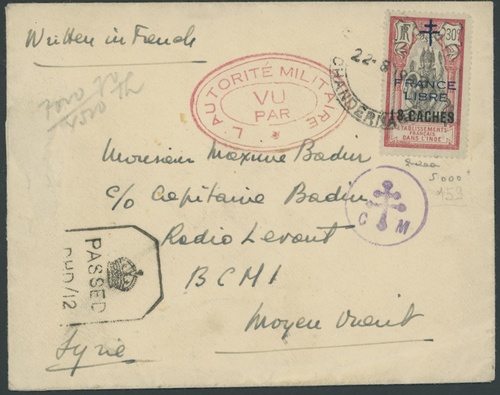 Written in French
L'AUTORITÉ MILITAIRE
VU
PAR
22-8
CHANDERNA
RF
30
FRANCE
LIBRE
18 CACHES
ÉTABLISSEMENTS
FRANÇAIS
DANS L'INDE
Monsieur Maxime Badin
c/o Capitaine Badin
Radio Levant
BCM1
Moyen Orient
Syrie
5000
153
C M
PASSED
DHD/12